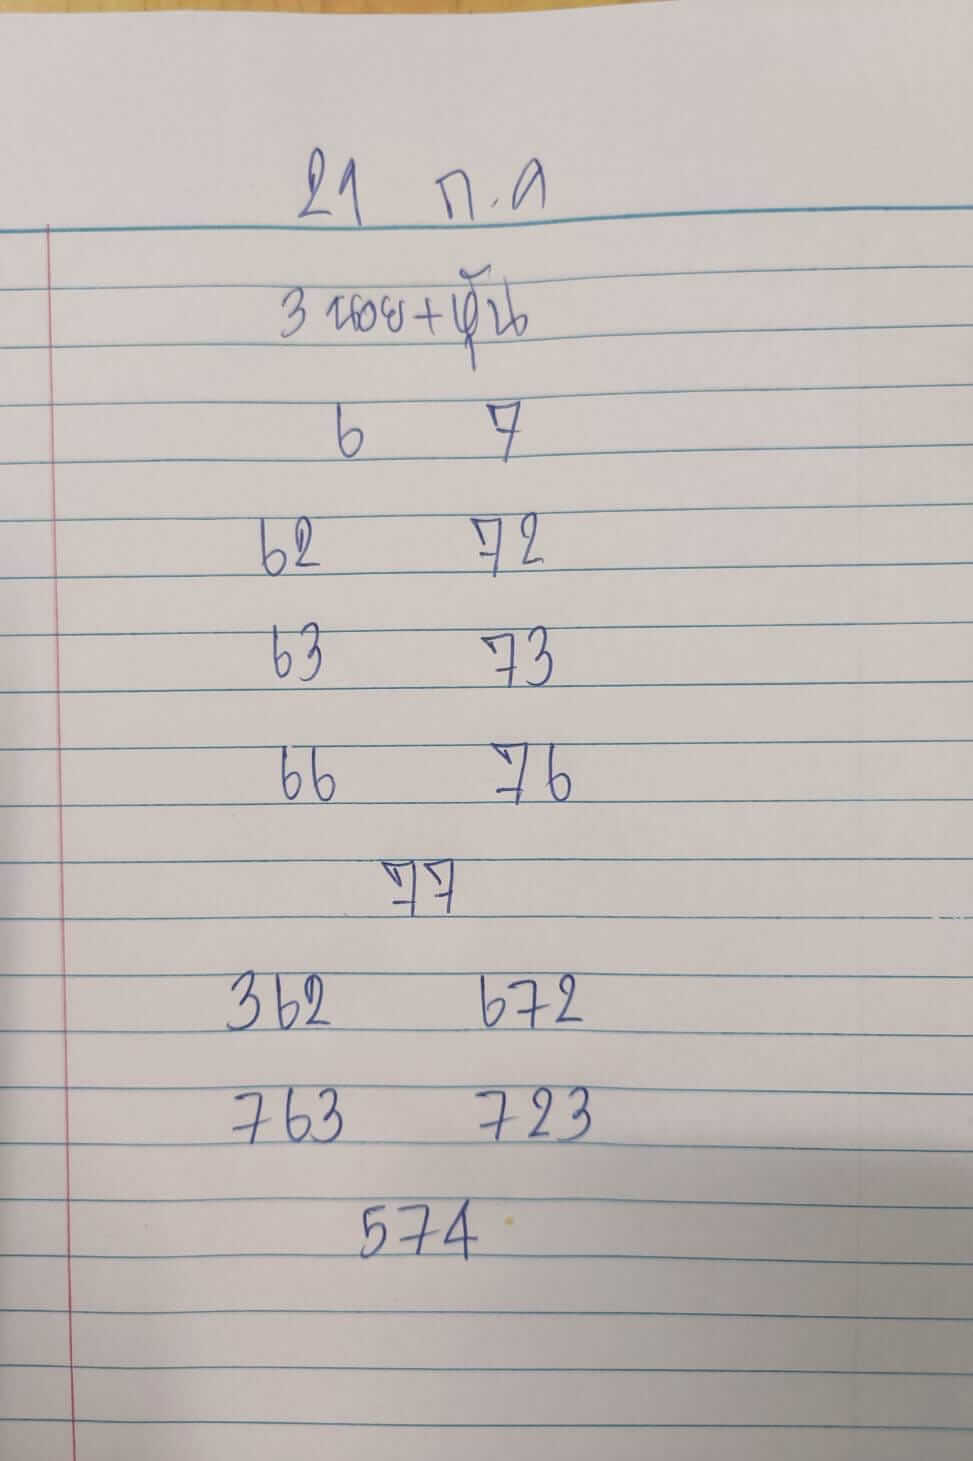 21 ก.ค
3 นอย+หุ้น
6 7
62 72
63 73
66 76
77
362 672
763 723
574